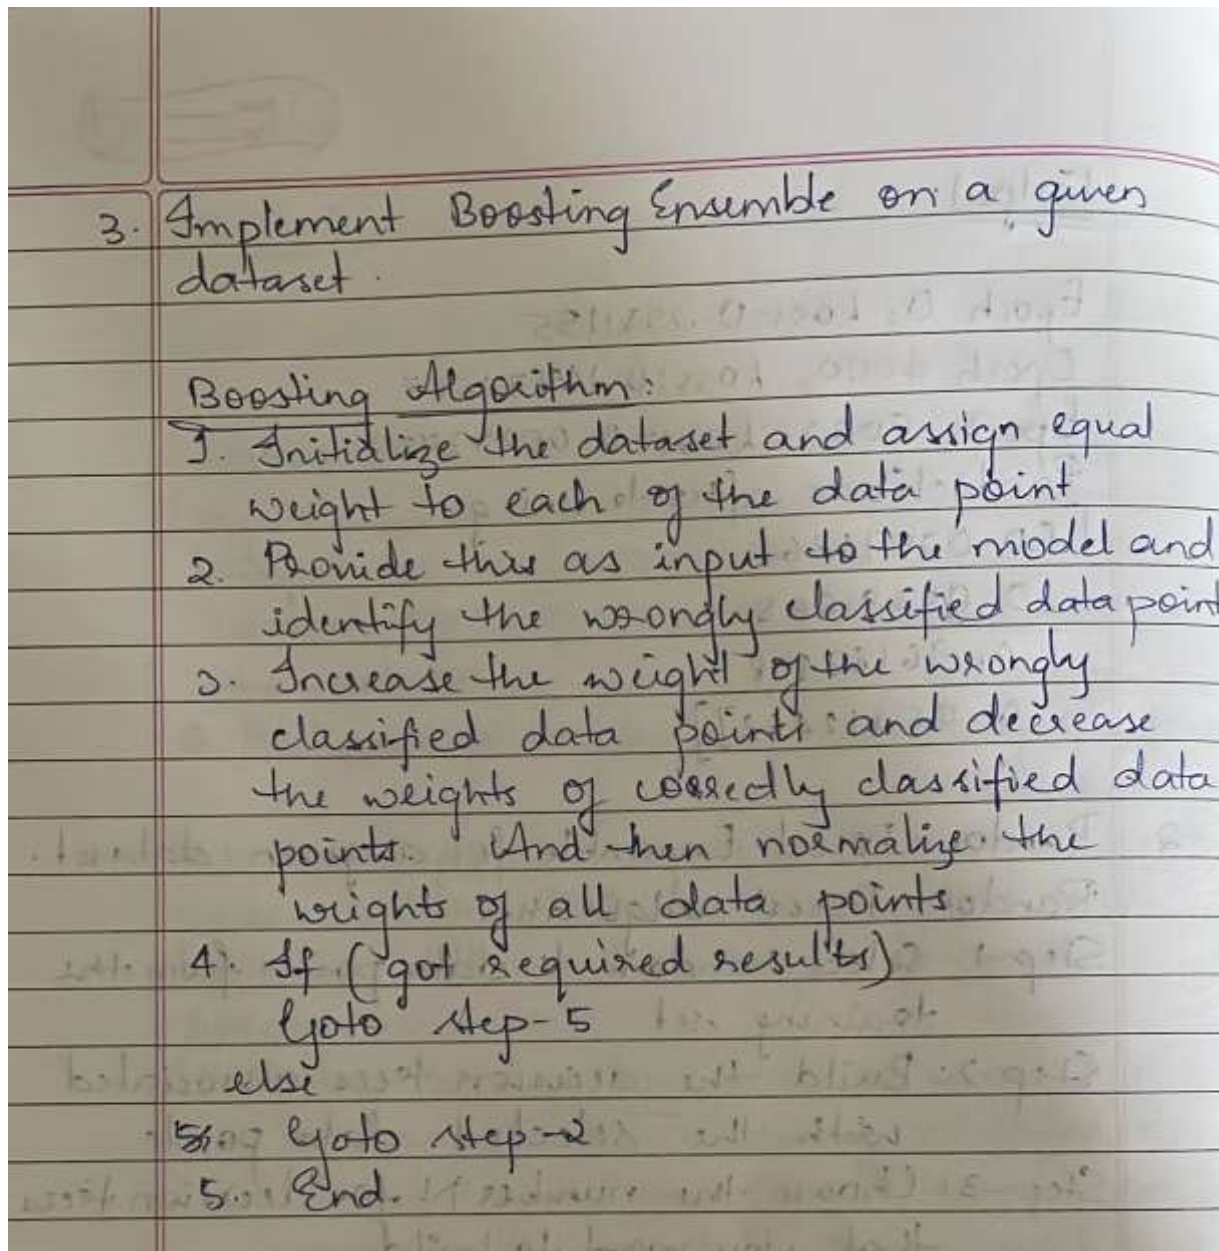 3. Implement Boosting Ensemble on a given
dataset.
Boosting Algorithm:
1. Initialize the dataset and assign equal
weight to each of the data point
2. Provide this as input to the model and
identify the wrongly classified data point
3. Increase the weight of the wrongly
classified data points and decrease
the weights of correctly classified data
points. And then normalize the
weights of all data points
4. If (got required results)
Goto step-5
else
Goto step-2
5. End.